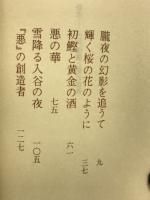 朧夜の幻影を追うて 九
輝く桜の花のように 三七
初鰹と黄金の酒 六一
悪の華 七五
雪降る入谷の夜 一〇五
『悪』の創造者 一二七